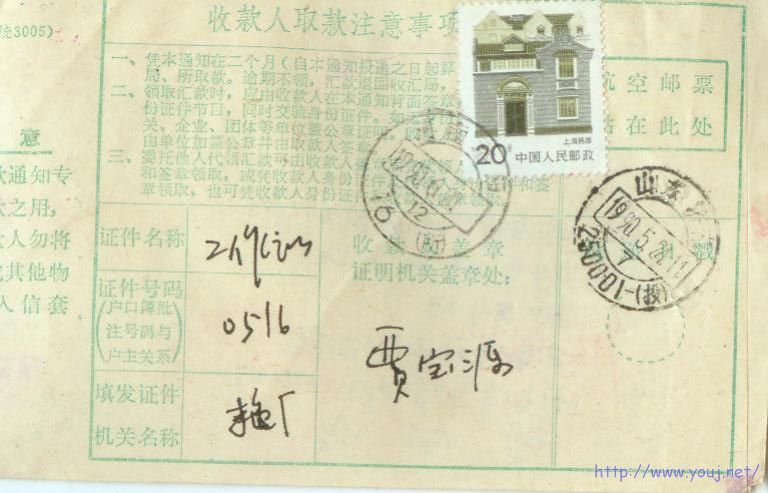 统3005)
收款人取款注意事项
一、凭本通知在二个月(自本通知投递之日起算
局、所取款。逾期不领,汇款退回收汇局,
二、领取汇款时,应由收款人在本通知背面签章
份证件节目,同时交验身份证件。如无
关、企业、团体等单位盖公章证明。收款人
由单位加盖公章并由取款人签章
三、委托他人代领汇款可
和签章领取,或凭收款人身份证件和签
章领取,也可凭收款人身份证
航空邮票
贴在此处
上海民居
20分
中国人民邮政
意
款通知专
款之用,
款人勿将
或其他物
入信套
证件名称
收款人盖章
证明机关盖章处:
证件号码
(户口簿批
注号码与
户主关系)
0516
贾宝源
填发证件
机关名称
1990.6.
12
16
(所)
山东
1990.5.28.11
7
250001-(投)
戳
http://www.youj.net/